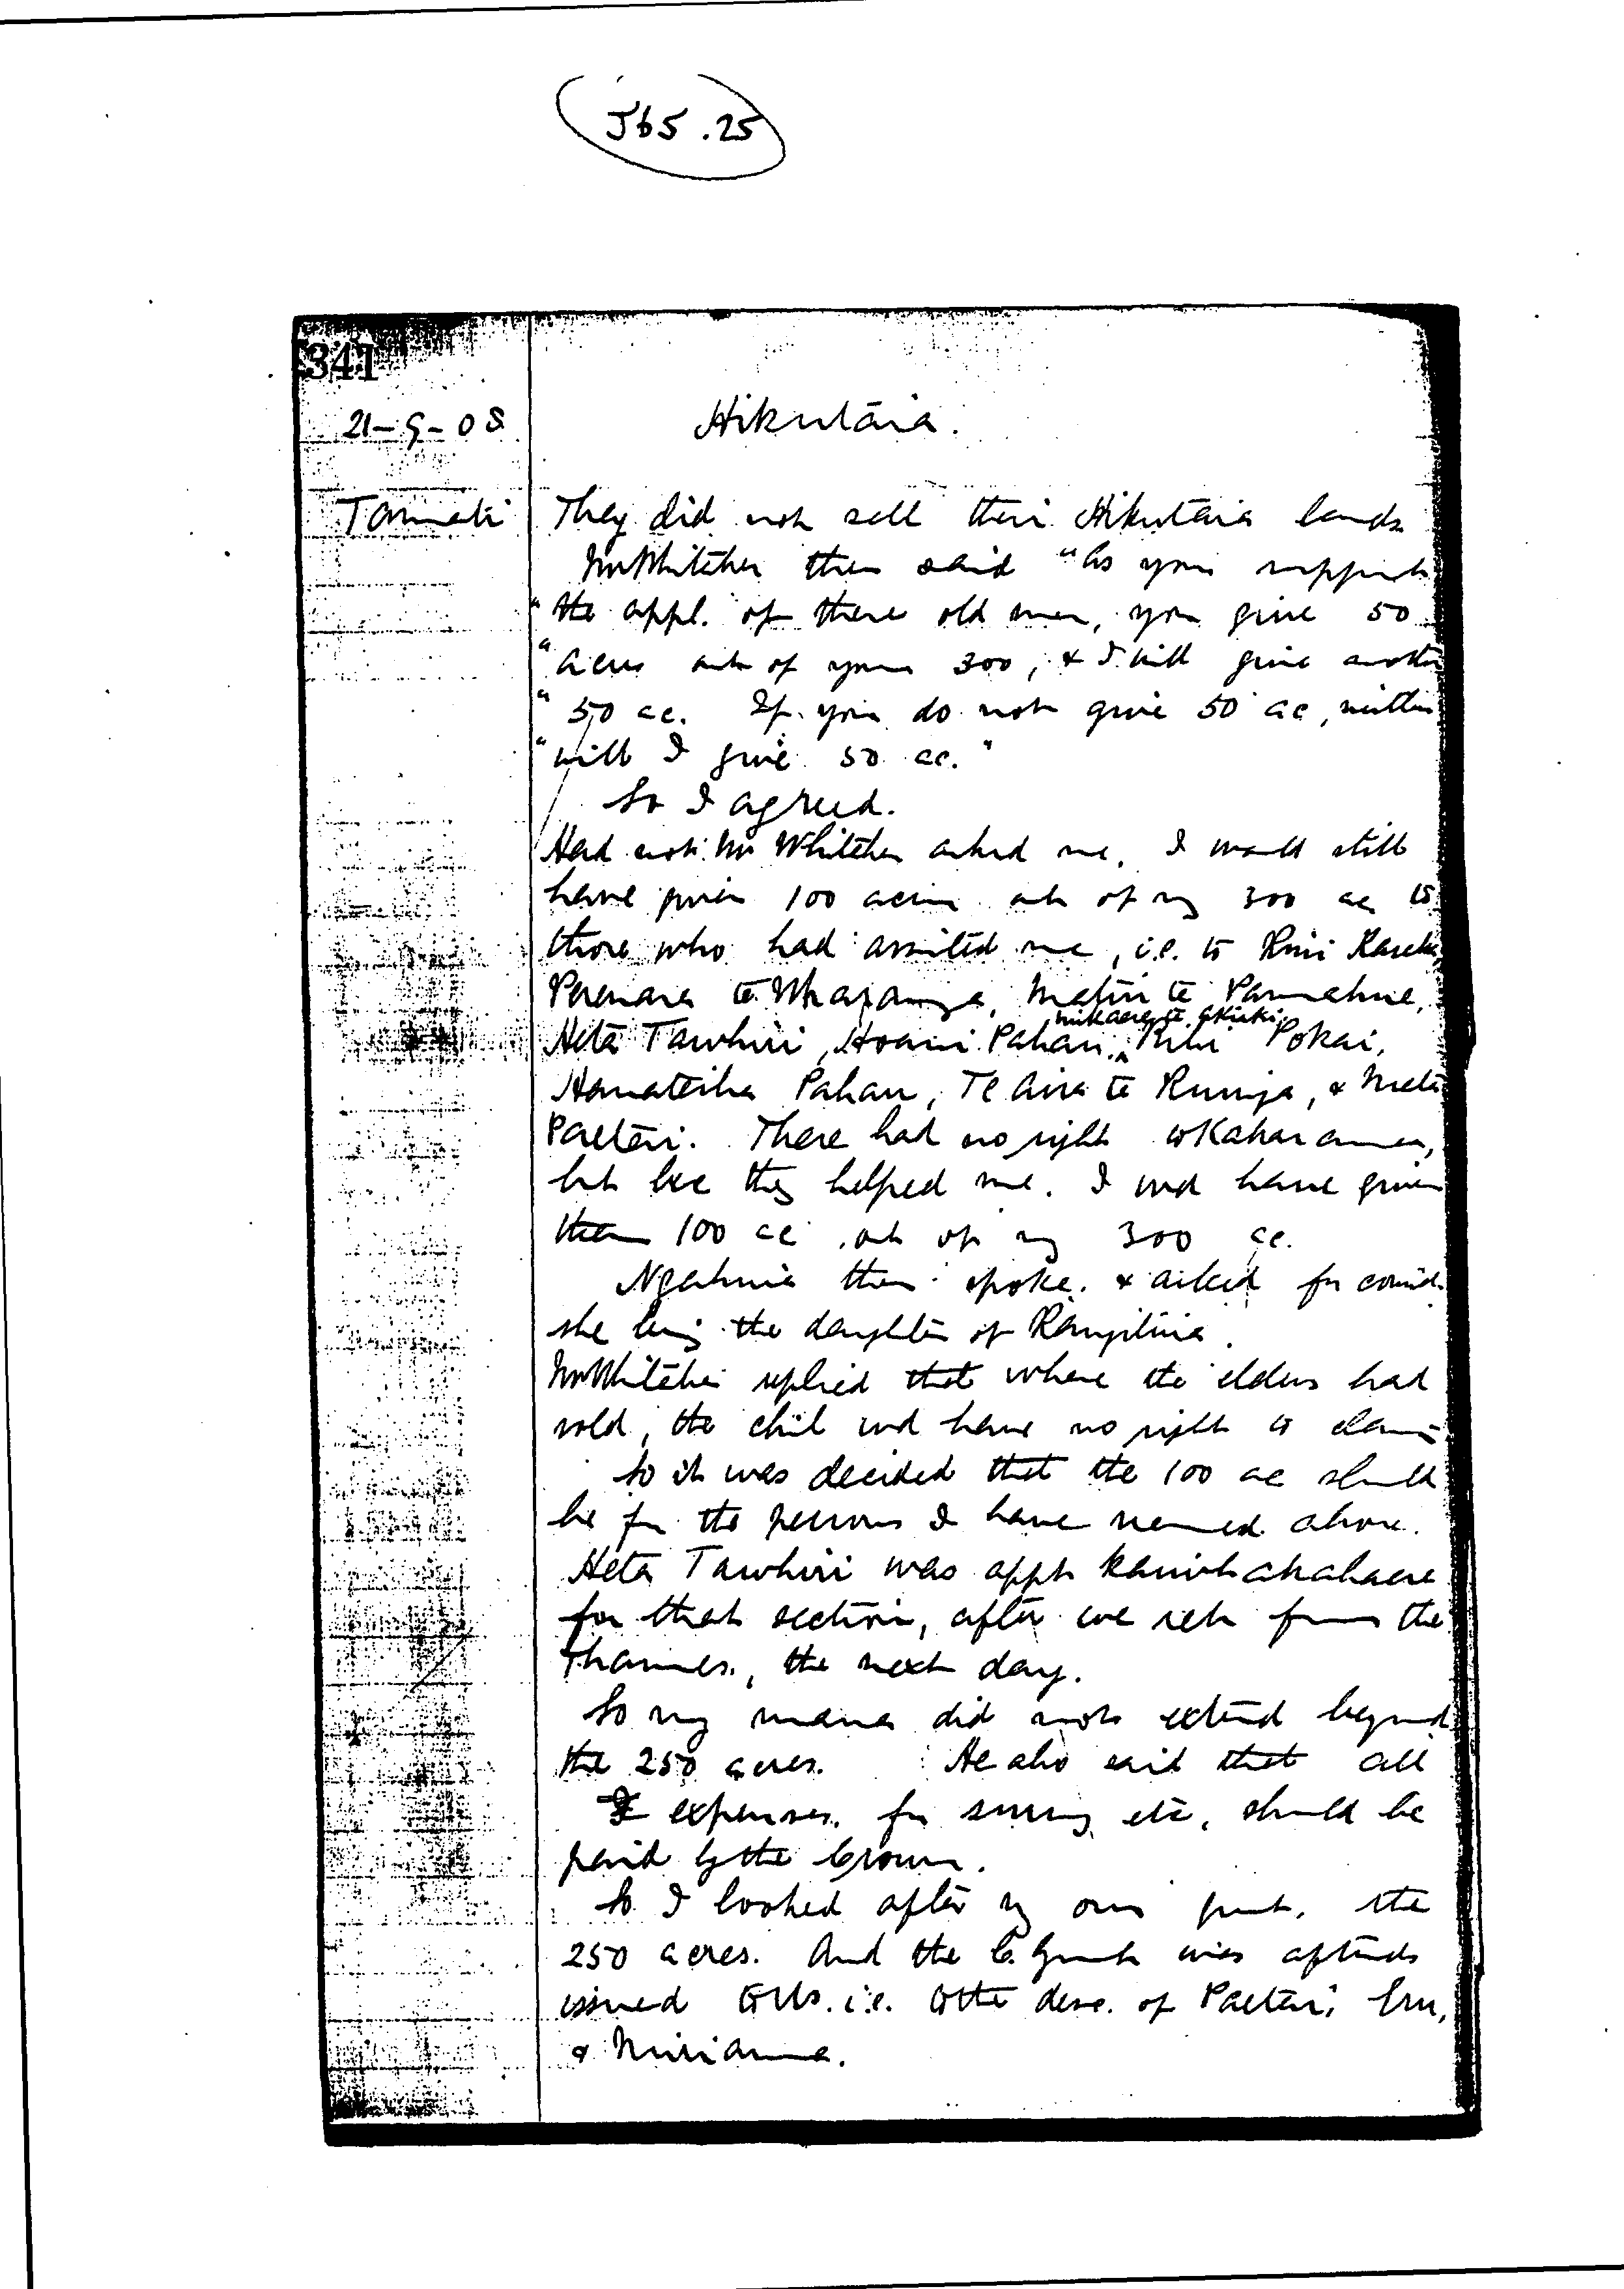 J65.25
341
21-9-08
Hikutaia.
Tamati
They did not sell their Hikutaia lands
Mr Whitcher then said "As you support
"the appl. of these old men, you give 50
"acres out of your 300, & I will give another
"50 ac. If you do not give 50 ac, neither
"will I give 50 ac."
So I agreed.
Had not Mr Whitcher asked me, I would still
have given 100 acres out of my 300 ac to
those who had assisted me, i.e. to
te Matiu te
mikaere te
Heta Tawhiri, Hoani Pahau, Pokai,
Pahau, Te te & Mata
Paetai. These had no right to
but bec they helped me. I wd have given
them 100 ac out of my 300 ac.
then spoke & asked for consid.
she being the daughter of
Mr Whitcher replied that where the elders had
sold, the chil wd have no right to claim
So it was decided that the 100 ac should
be for the persons I have named above.
Heta Tawhiri was appt kaiwhakahaere
for that section, after we ret from the
Thames, the next day.
So my mana did not extend beyond
the 250 acres. He also said that all
expenses for survey etc, should be
paid by the Crown.
So I looked after my own part, the
250 acres. And the C. Grant was aftwds
issued to us. i.e. to the desc. of Paetai,
& Miriama.